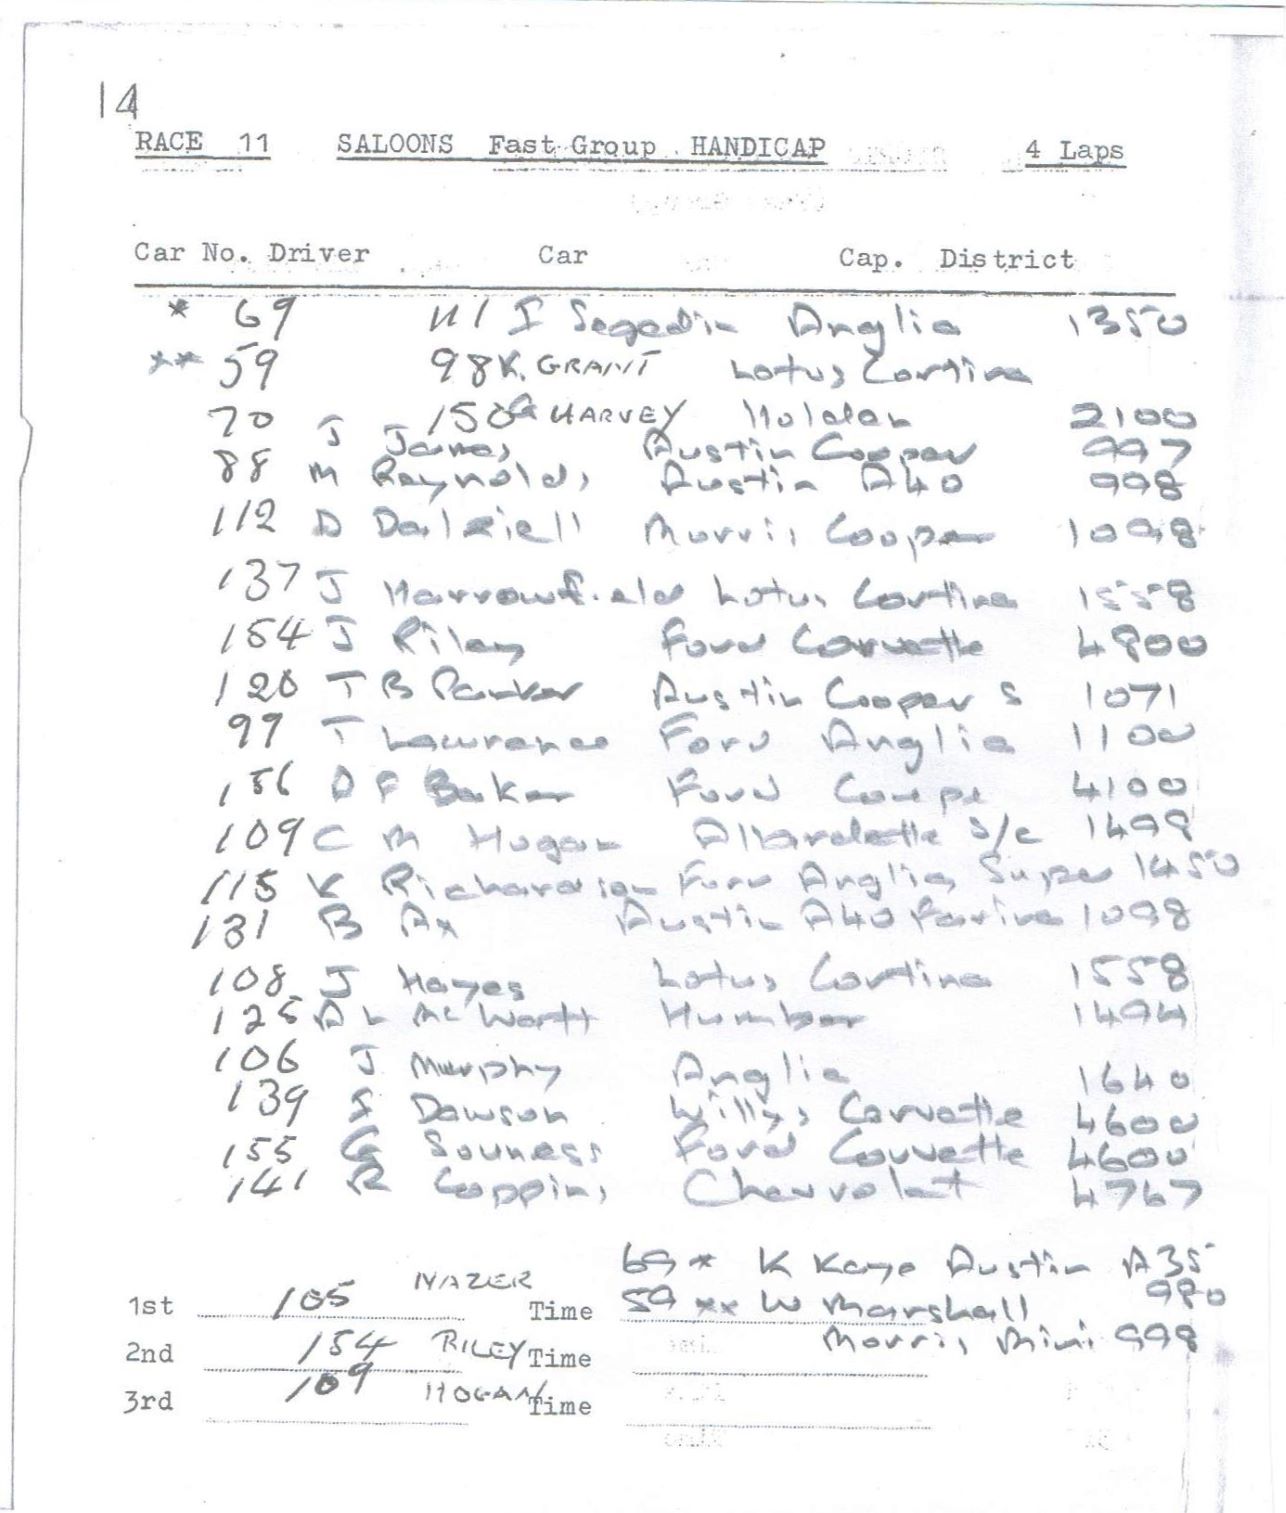 14
RACE 11 SALOONS Fast Group HANDICAP 4 Laps
Car No. Driver Car Cap. District
* 69 111 I Segedin Anglia 1350
** 59 98 K. GRANT Lotus Cortina
70 150 G HARVEY Holden 2100
J James Austin Cooper 997
88 M Reynolds Austin A40 998
112 D Dalziell Morris Cooper 1098
137 J Harrowfield Lotus Cortina 1558
154 J Riley Ford Corvette 4800
120 T B Parker Austin Cooper S 1071
99 T Lawrence Ford Anglia 1100
156 D F Baker Ford Coupe 4100
109 C M Hogan Allardette S/c 1498
115 K Richardson Ford Anglia Super 1450
131 B Ax Austin A40 Farina 1098
108 J Hayes Lotus Cortina 1558
125 A L McWortt Humber 1494
106 J Murphy Anglia 1640
139 S Dawson Willys Corvette 4600
155 G Souness Ford Corvette 4600
141 R Coppins Chevrolet 4767
69 * K Kaye Austin A35 980
1st 105 NAZER Time 59 ** W Marshall
Morris Mini 998
2nd 154 RILEY Time
3rd 109 HOGAN Time